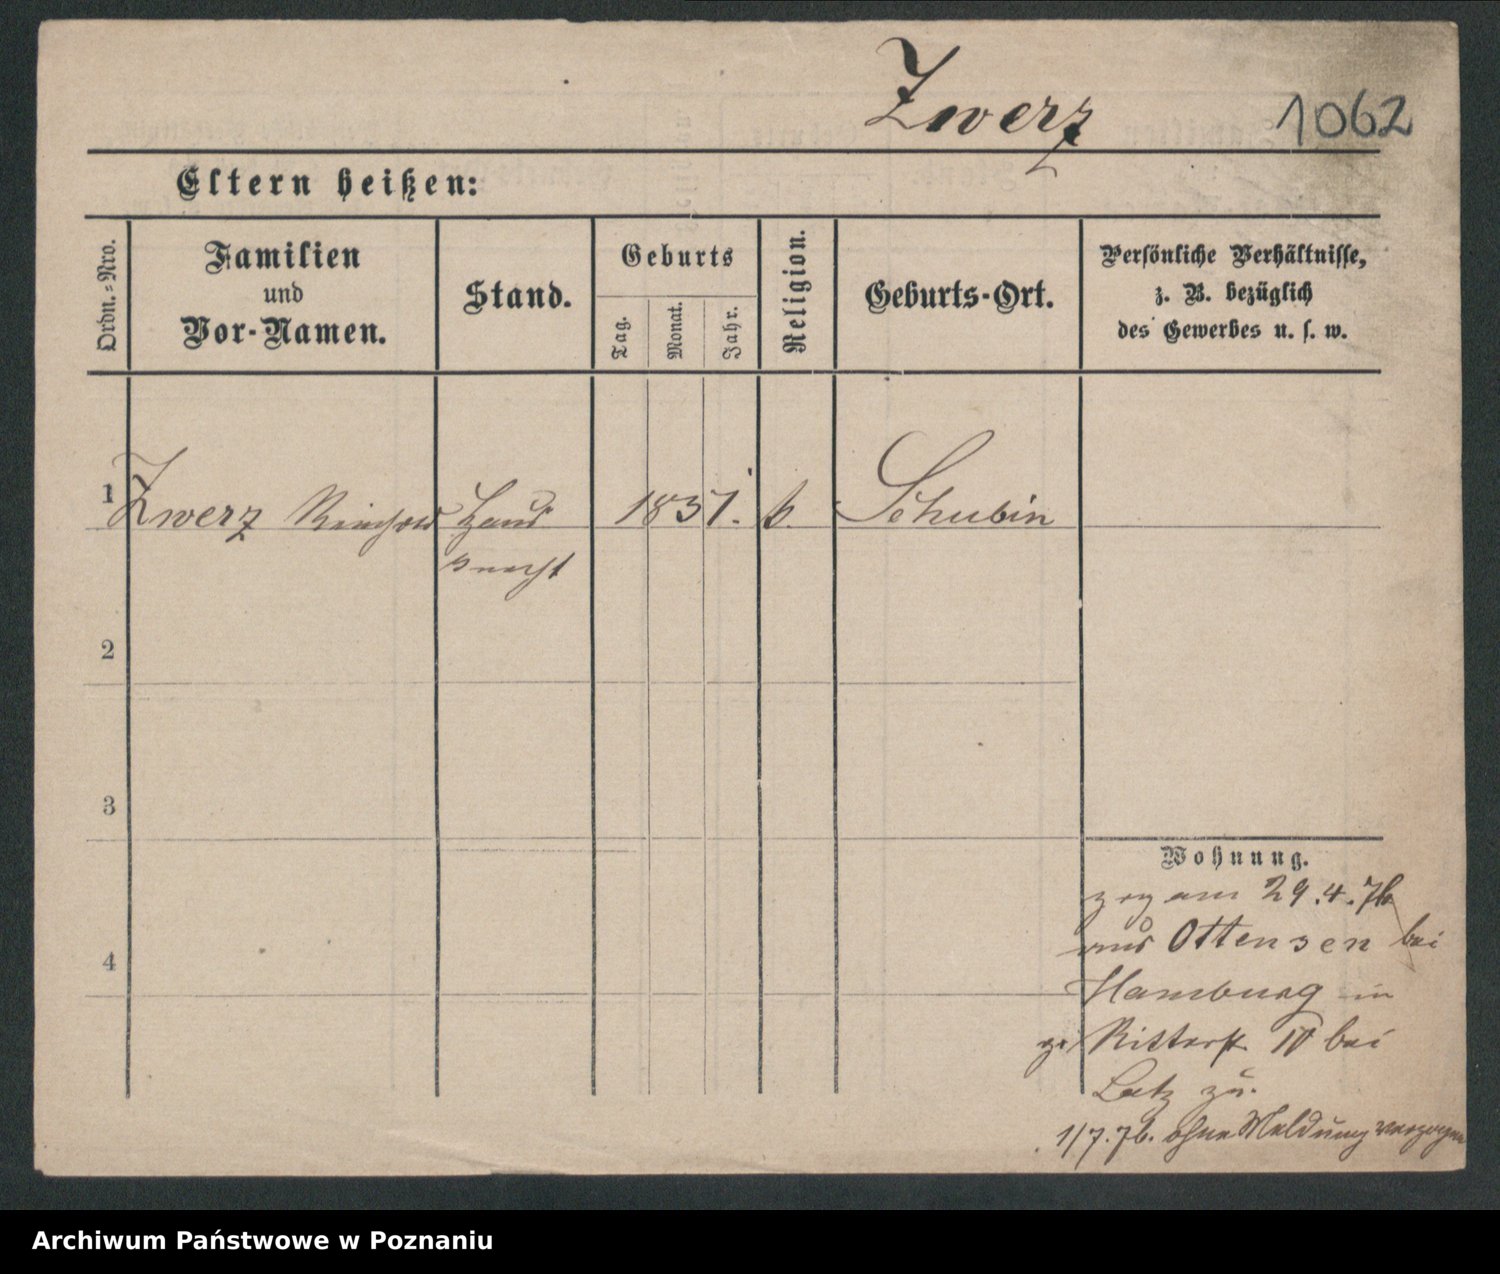 Zwerz 1062
Eltern heißen:
Ordn.-Nro.
Familien
und
Vor-Namen.
Stand.
Geburts
Tag.
Monat.
Jahr.
Religion.
Geburts-Ort.
Persönliche Verhältnisse,
z. B. bezüglich
des Gewerbes u. s. w.
1 Zwerz Reinhold Haus 1837. k. Schubin
knecht
2
3
4
Wohnung.
zog am 29.4.76
aus Ottensen bei
Hamburg in
Ritterst. bei
Latz zu.
1/7.76. ohne Meldung verzogen
Archiwum Państwowe w Poznaniu